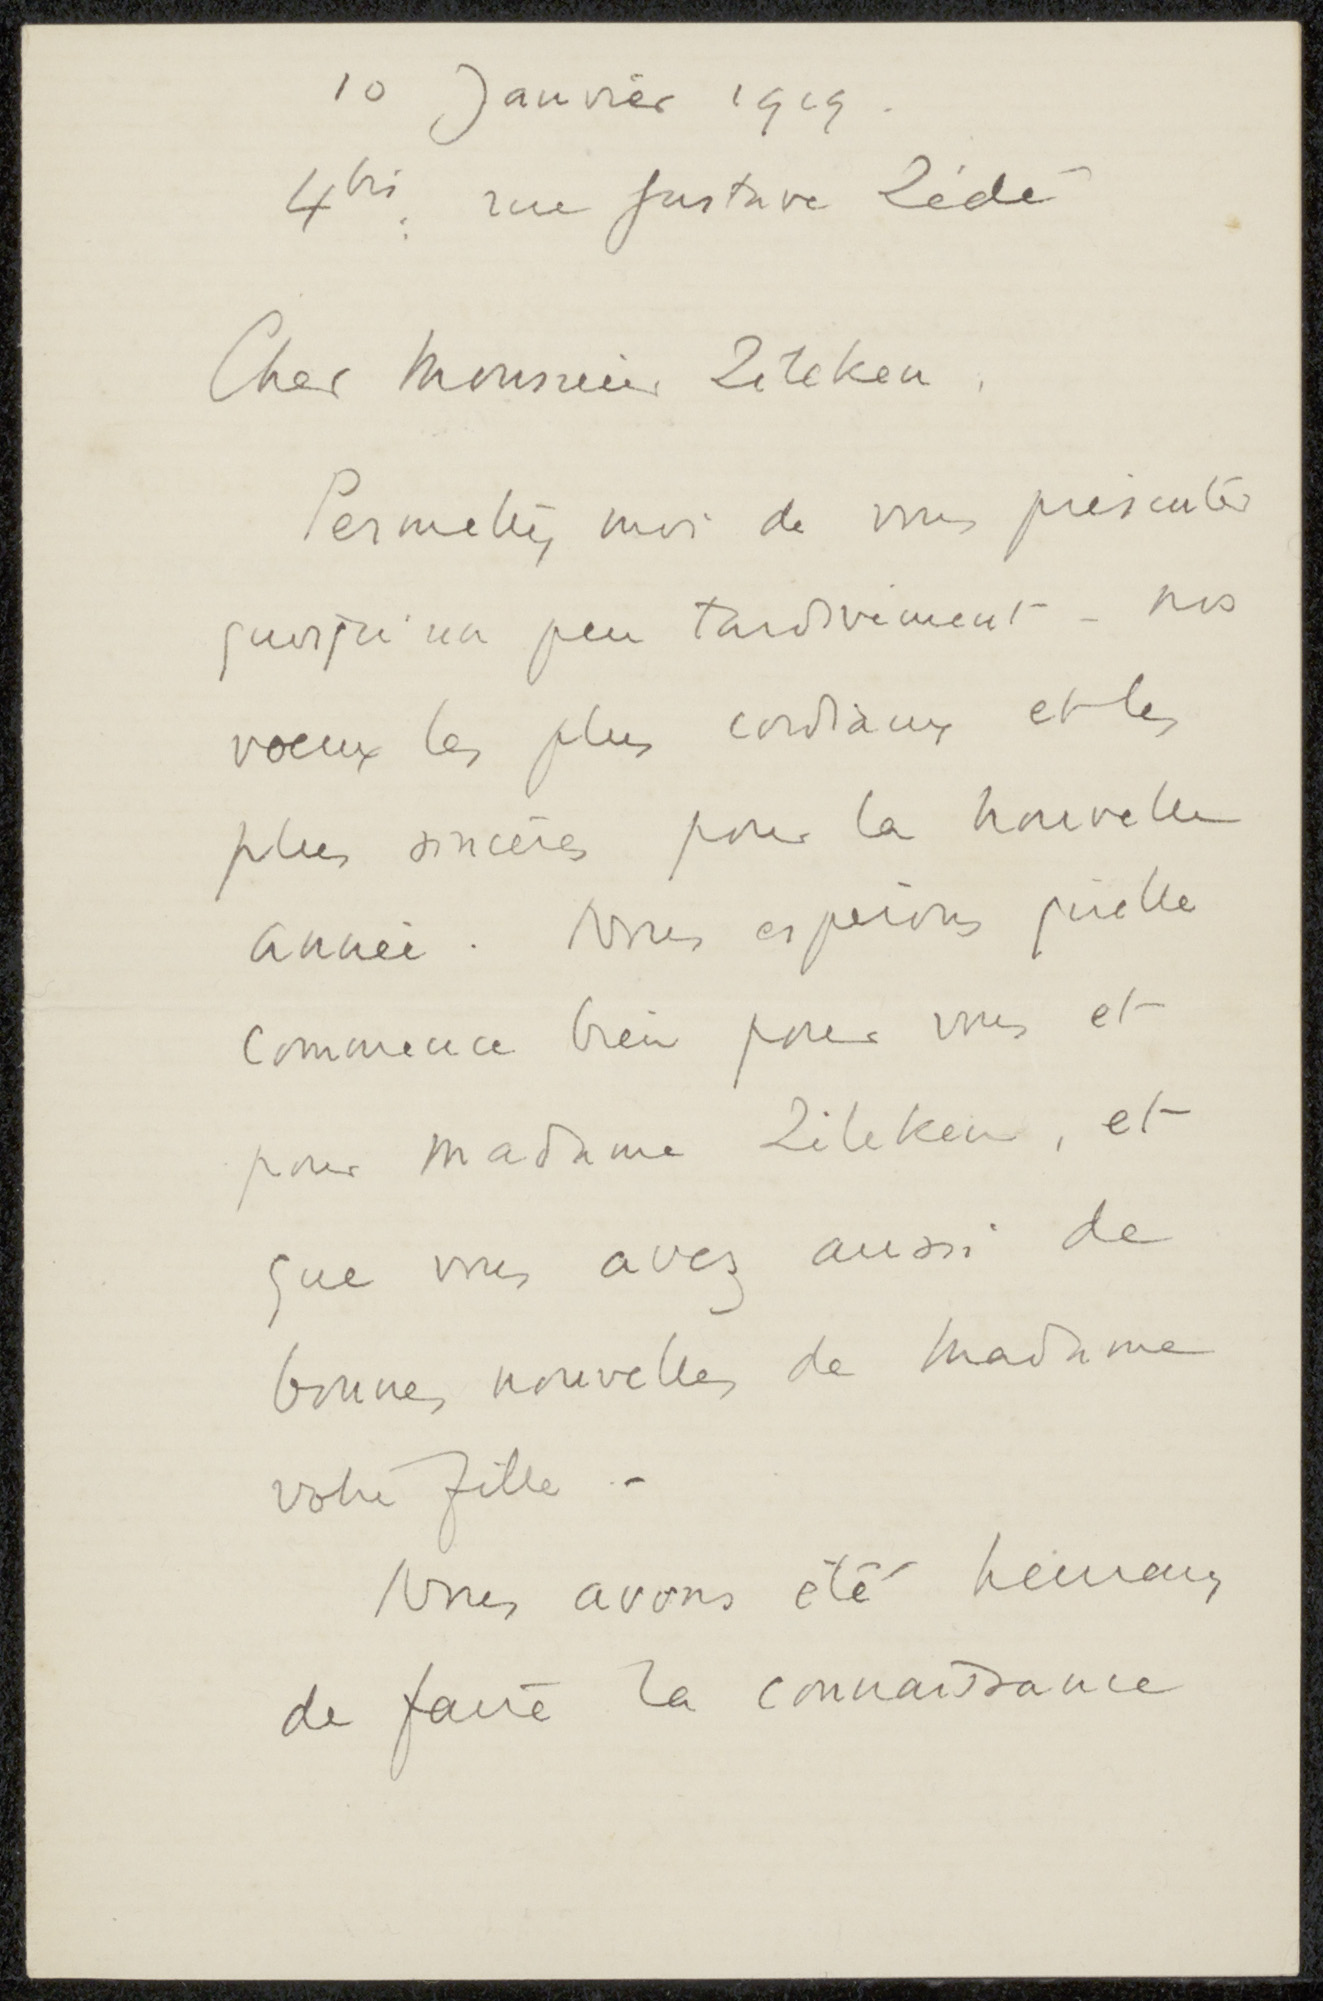 10 Janvier 1919.
4bis. rue Gustave Zédé
Cher Monsieur Zilcken,
Permettez moi de vous présenter
quoiqu'un peu tardivement - nos
voeux les plus cordiaux et les
plus sincères pour la nouvelle
année. Nous espérons qu'elle
commence bien pour vous et
pour Madame Zilcken, et
que vous avez aussi de
bonnes nouvelles de Madame
votre fille. -
Nous avons été heureux
de faire la connaissance